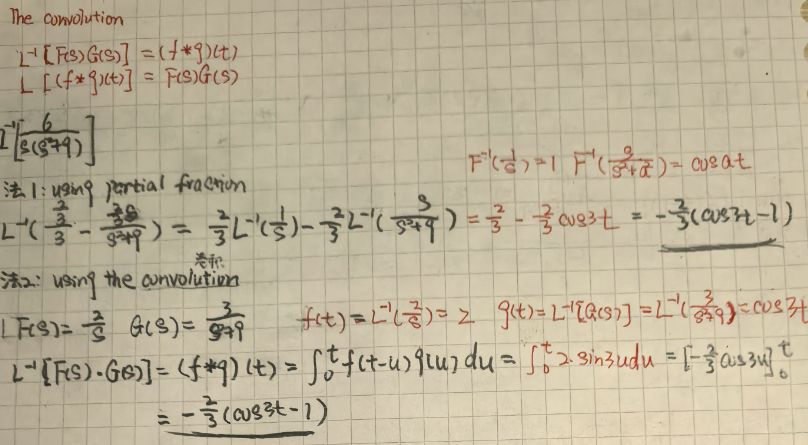 The convolution
L⁻¹[F(s)G(s)] = (f*g)(t)
L[(f*g)(t)] = F(s)G(s)
L⁻¹[6/(s(s²+9))]
F⁻¹(1/s)=1 F⁻¹(s/(s²+a²)) = cos at
法1: using partial fraction
L⁻¹((2/3)/3 - (2/3 s)/(s²+9)) = 2/3 L⁻¹(1/s) - 2/3 L⁻¹(s/(s²+9)) = 2/3 - 2/3 cos3t = -2/3(cos3t-1)
卷积
法2: using the convolution
F(s)= 2/s G(s) = 3/(s²+9) f(t) = L⁻¹(2/s) = 2 g(t) = L⁻¹[G(s)] = L⁻¹(3/(s²+9)) = cos3t
L⁻¹[F(s)·G(s)] = (f*g)(t) = ∫₀ᵗ f(t-u)g(u)du = ∫₀ᵗ 2·sin3udu = [-2/3 cos3u]₀ᵗ
= -2/3(cos3t-1)